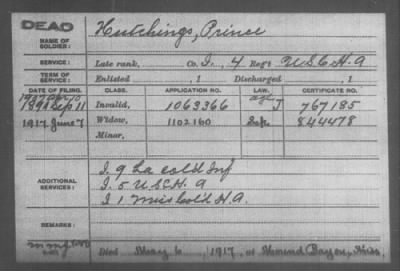 DEAD
NAME OF SOLDIER: Hutchings, Prince
SERVICE: Late rank, Co. I, 4 Reg't U.S.C.H.A
TERM OF SERVICE: Enlisted , 1 Discharged , 1
DATE OF FILING. CLASS. APPLICATION NO. LAW. CERTIFICATE NO.
1891 Sep 11 Invalid, 1063366 J 767185
1917 June 7 Widow, 1102160 844478
Minor,
ADDITIONAL SERVICES: I. 9 La cold Inf
I. 5 U.S.C.H.A
I. 1 Miss Cold H.A.
REMARKS:
Died May 6, 1917, at Mound Bayou, Miss,